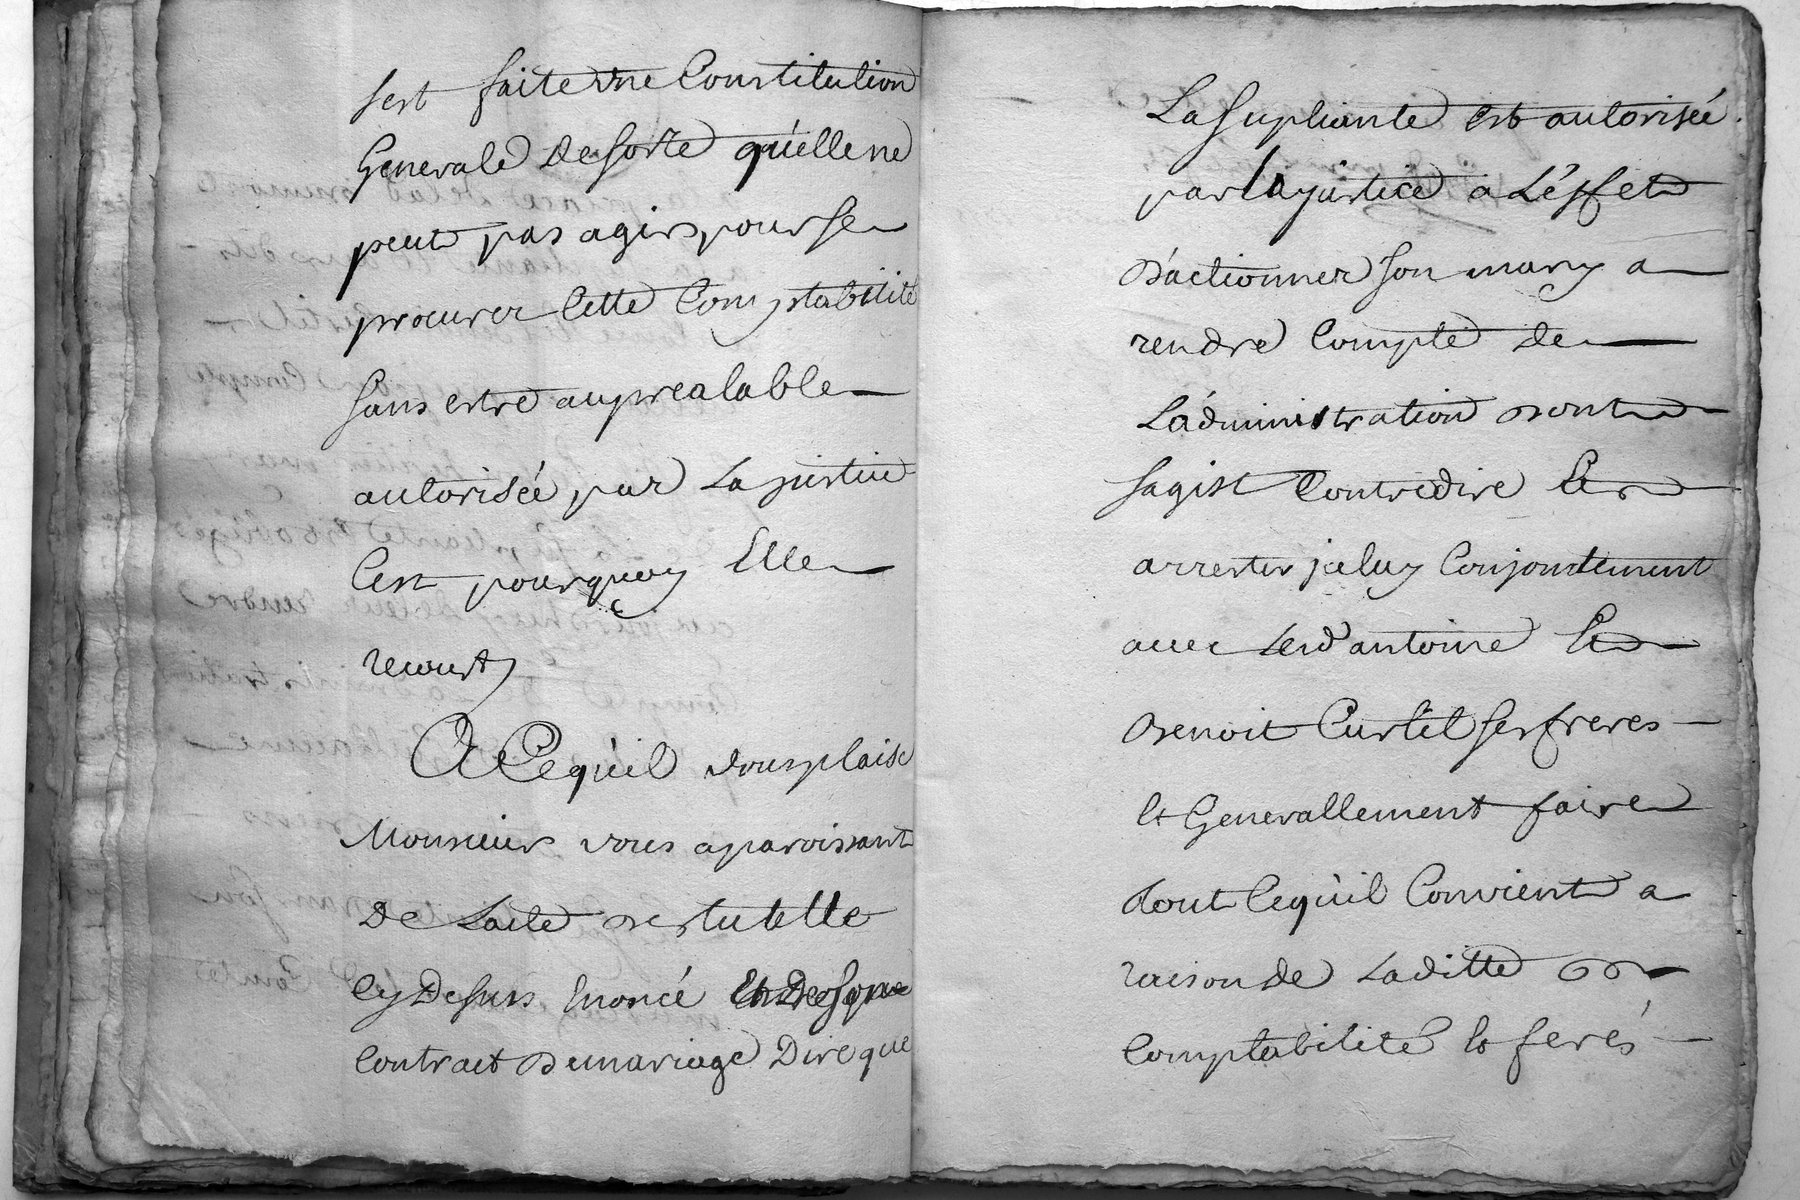 sest faite une Constitution
Generale de sorte qu'elle ne
peut pas agir pour se
procurer Cette Comptabilité
sans estre au prealable
autorisée par La justice
C'est pourquoy Elle
recourt
A Ce qu'il vous plaise
Monsieur vous aparoissant
De Lacte de tutelle
Cy Dessus Enoncé Et De son
Contract De mariage Dire que
La Supliante est autorisée
par la justice a L'effet
D'actionner son mary a
rendre Compte de
L'administration dont
sagist Contredire Et
arrester jceluy Conjointement
avec Led antoine Et
Benoit Curtil ses freres
Et Generallement faire
tout Ce qu'il Convient a
raison de Laditte
Comptabilité Et ferés